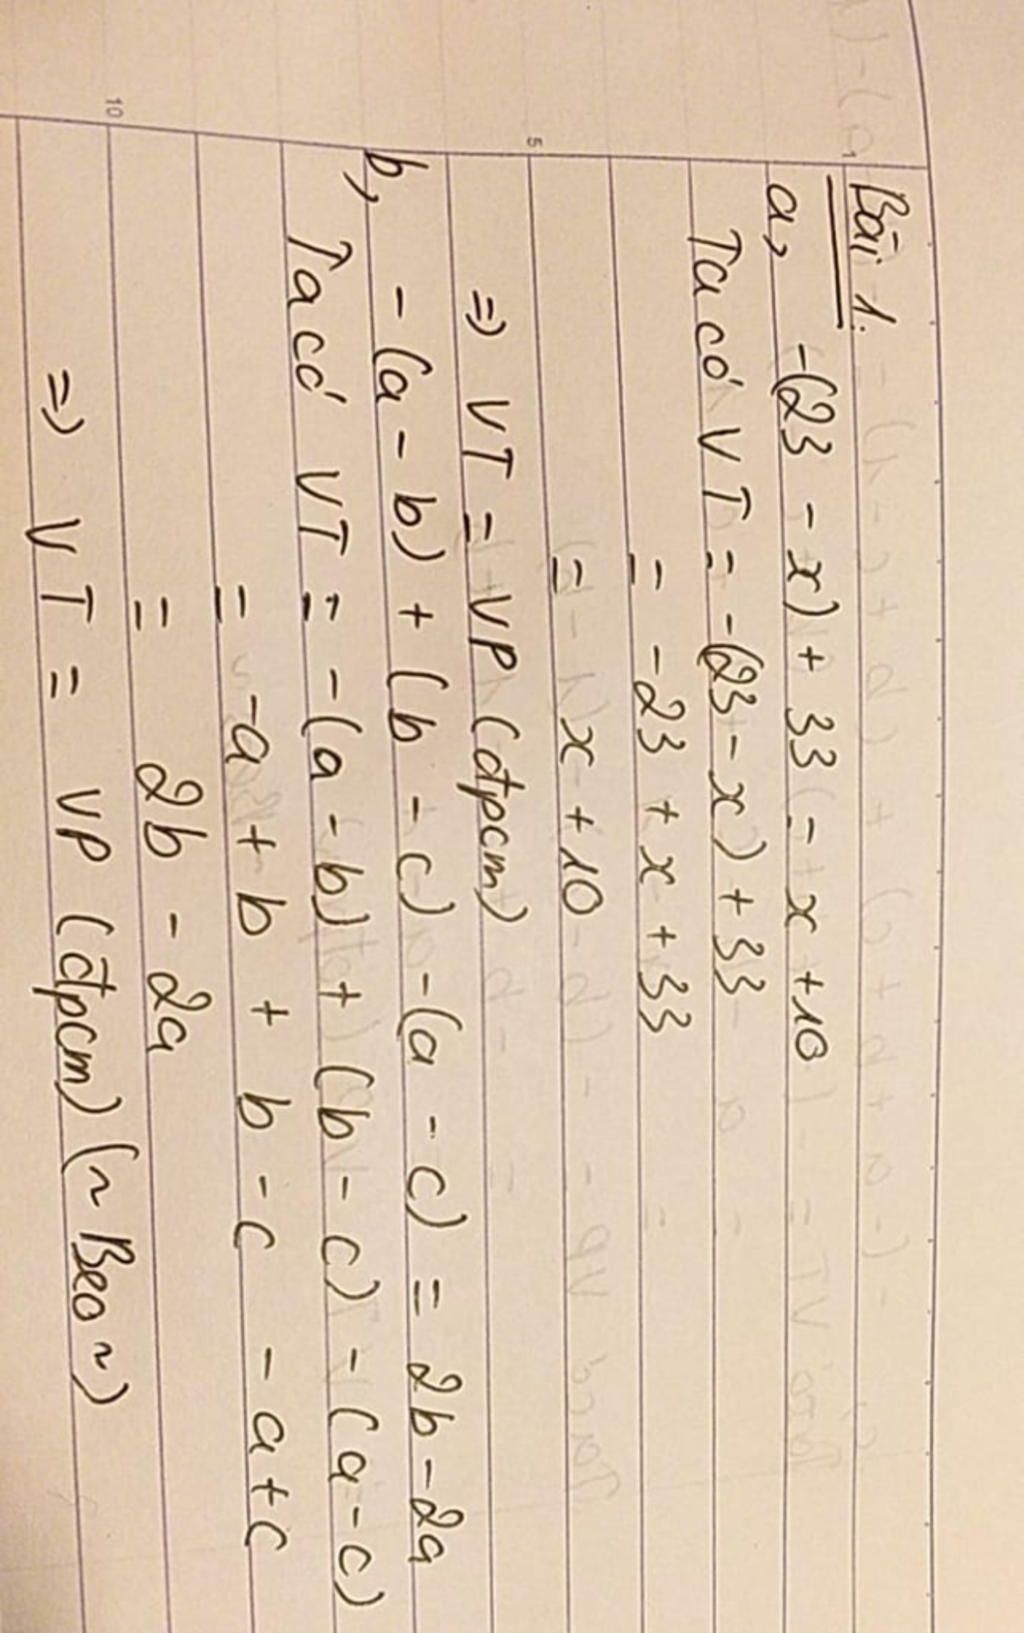 Bài 1.
a, -(23 - x) + 33 = x + 10
Ta có VT = -(23 - x) + 33
= -23 + x + 33
= x + 10
=> VT = VP (đpcm)
b, - (a - b) + (b - c) - (a - c) = 2b - 2a
Ta có VT = - (a - b) + (b - c) - (a - c)
= -a + b + b - c - a + c
= 2b - 2a
=> VT = VP (đpcm) (~ Beo ~)
1
5
10